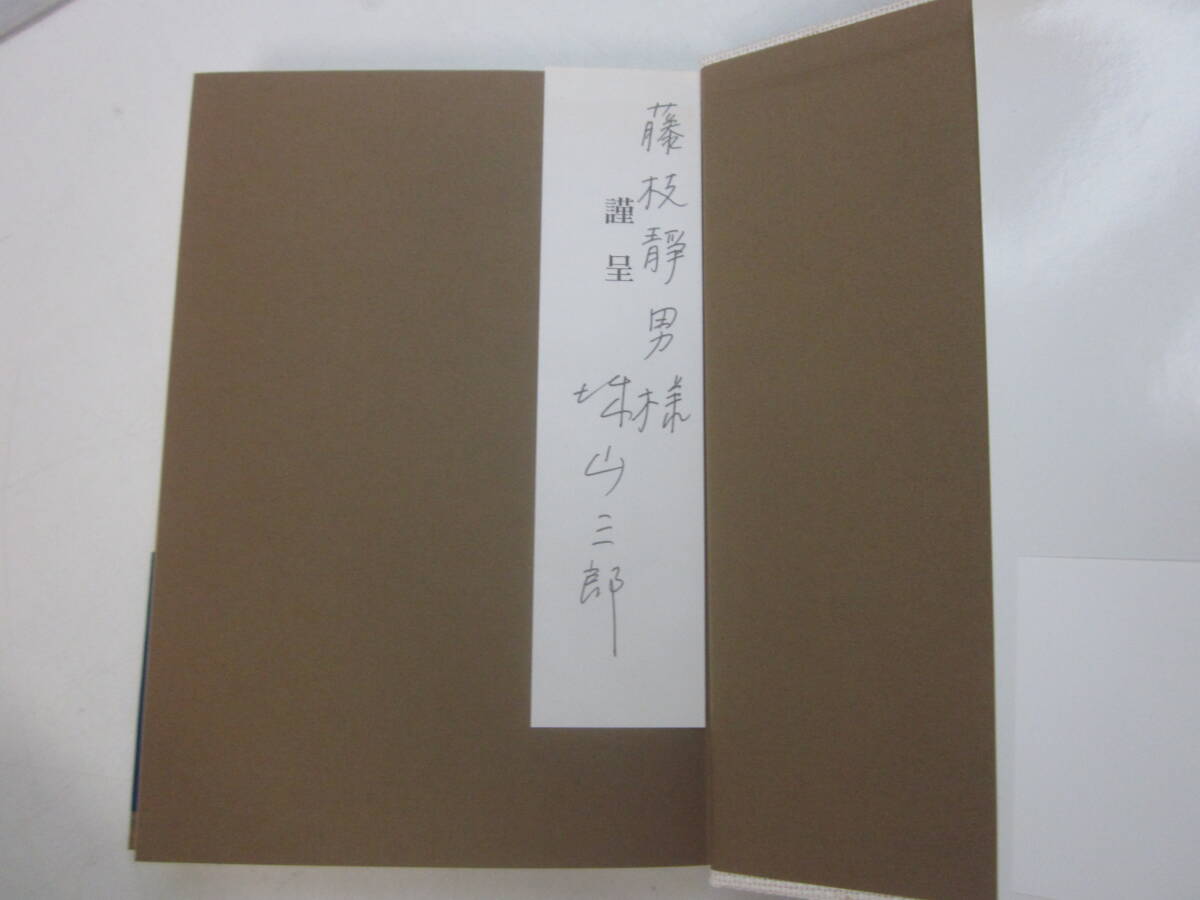 藤枝靜男様
謹呈
城山三郎